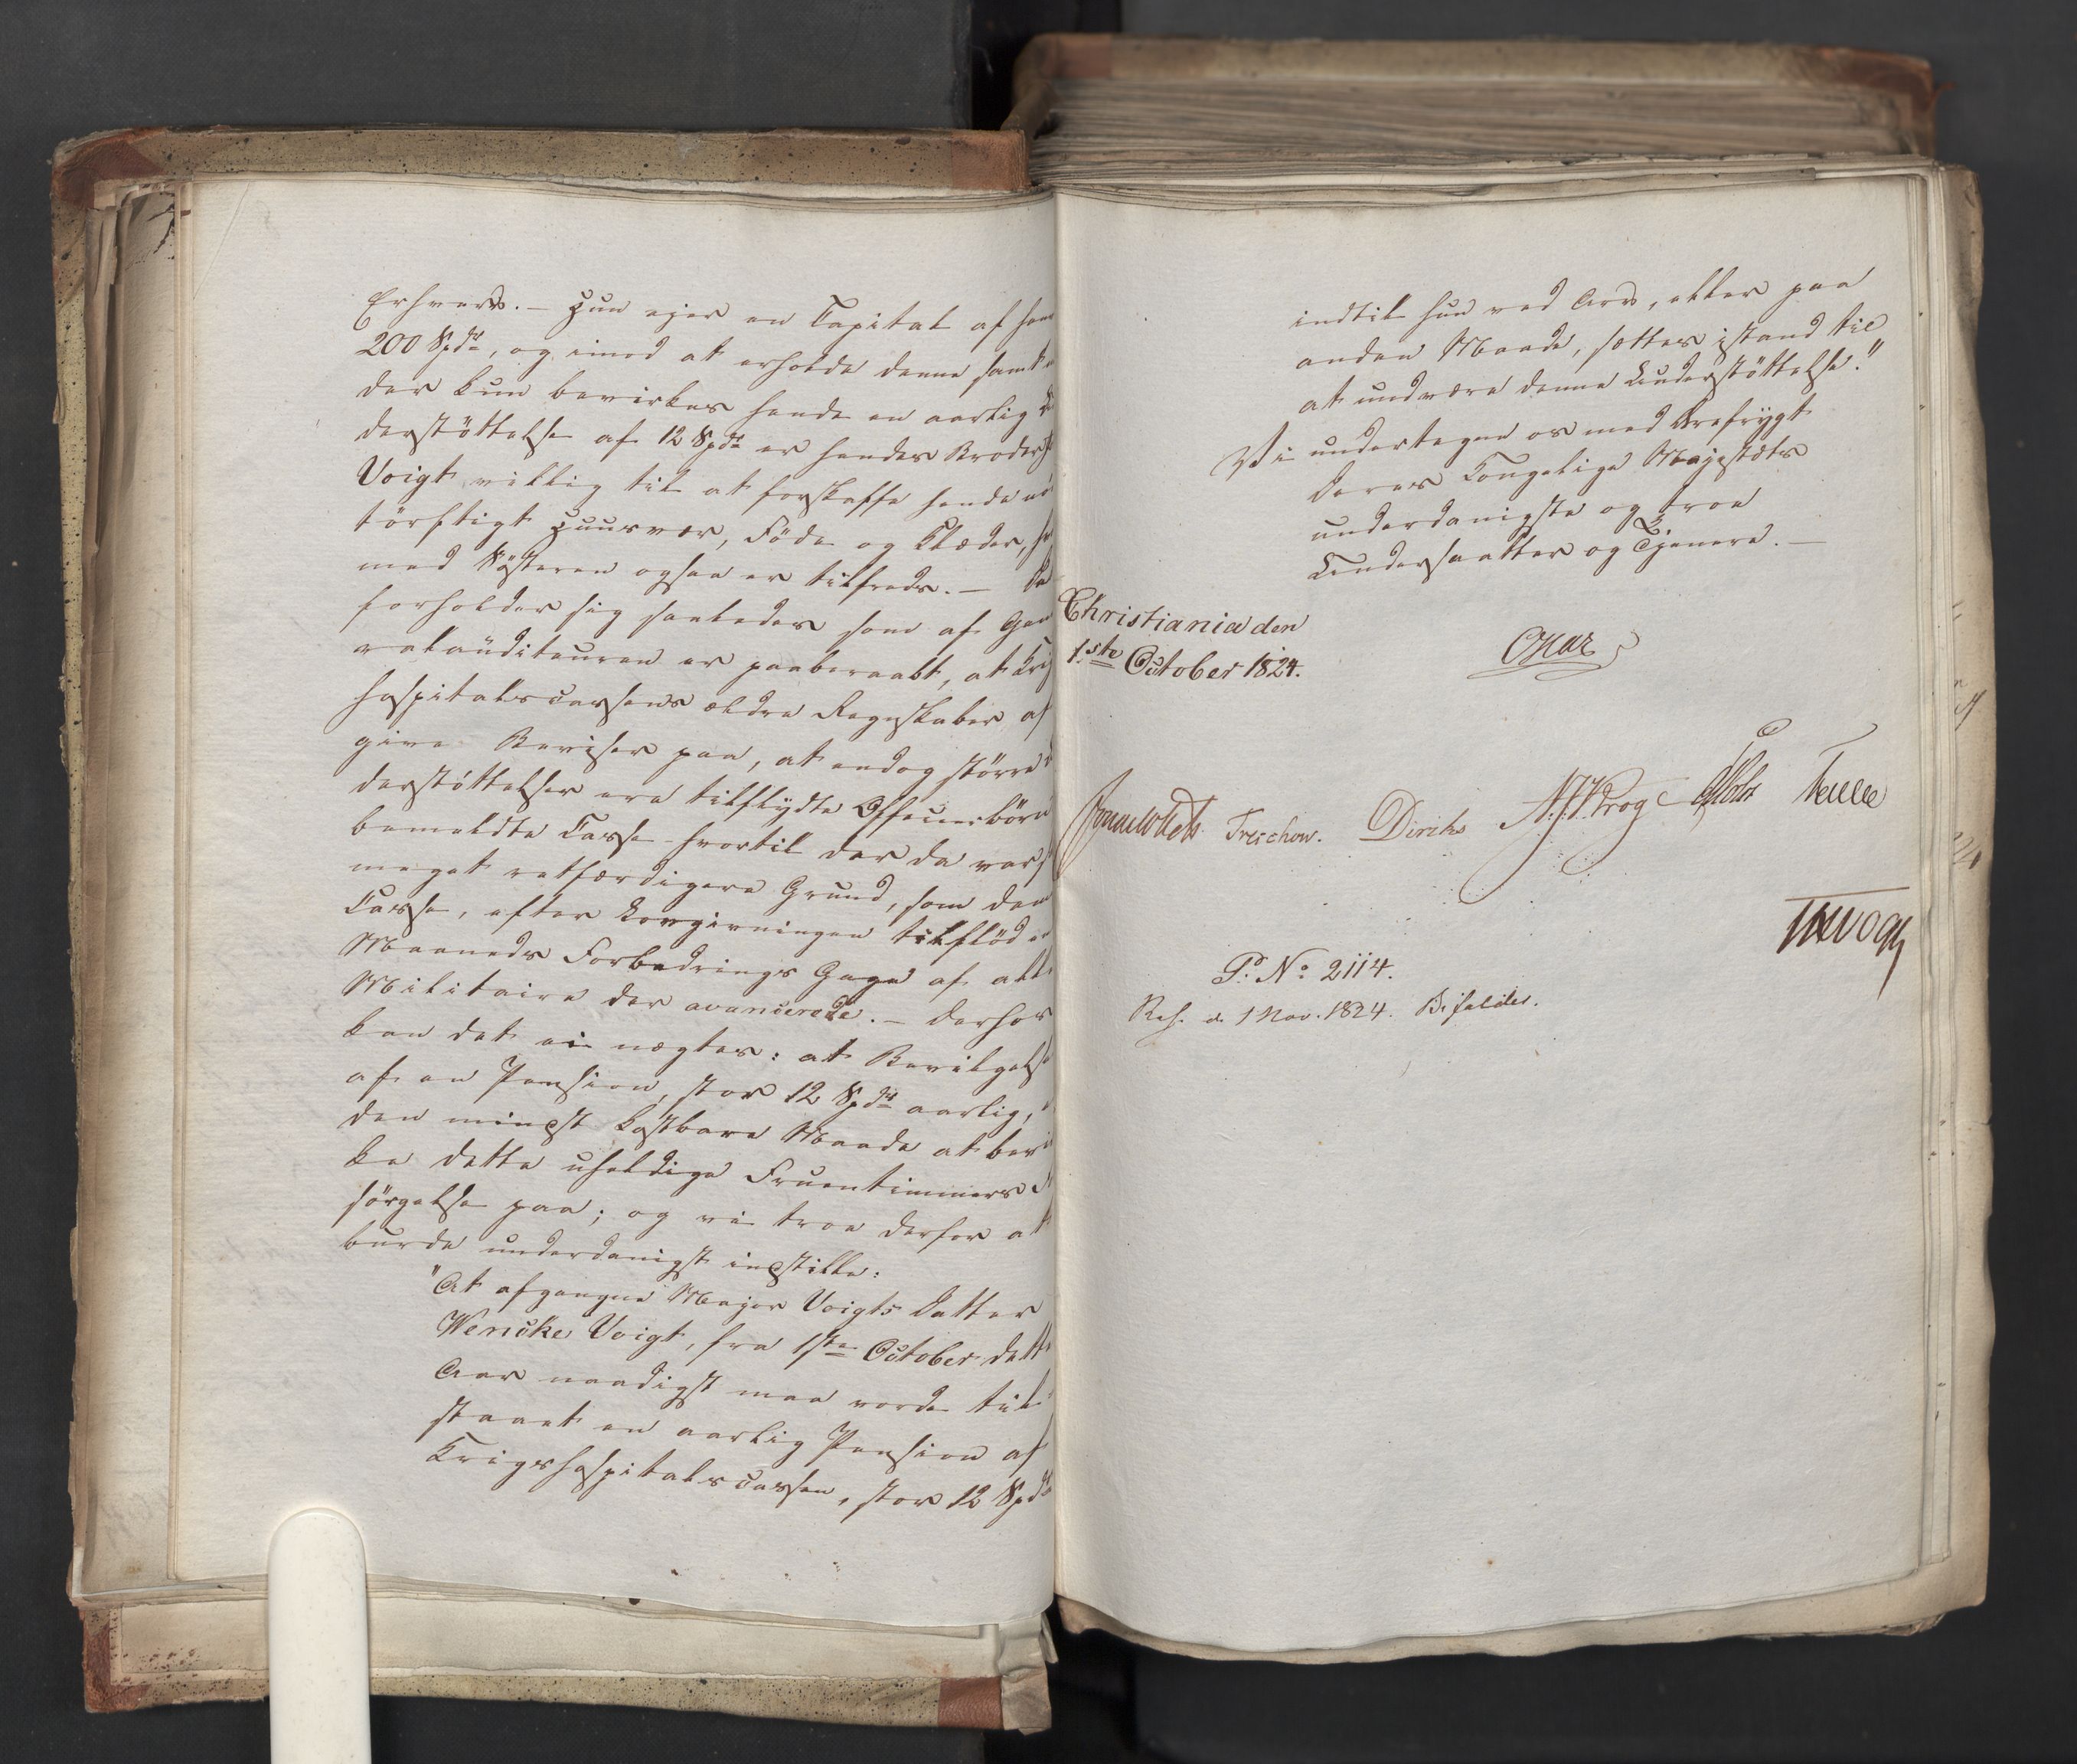 Erhverv. – Hun ejer en Capital af
200 Spdr, og imod at erholde denne samt
der kun bevirkes hende en aarlig
derstöttelse af 12 Spdr er hendes Broder
Voigt villig til at forskaffe hende
törftigt Huusvær, Föde og Klæder,
med Systeren ogsaa er tilfreds. –
forholder sig saaledes som af Gen
ralauditeuren er paaberaabt, at Krigs
hospitalscassens ældre Regnskaber af
give Beviser paa, at endog större
derstöttelser ere tilflydte Officiersbörn
bemeldte Casse – hvortil der da var
meget retfærdigere Grund, som den
Casse, efter Lovgivningen tilflöd
Maaneds Forbedrings Gage af alle
Militaire der avancerede. – Derhos
kan det ei nægtes: at Bevilgelse
af en Pension, stor 12 Spdr aarlig,
den mindst kostbare Maade at bevir
ke dette uheldige Fruentimmers
sörgelse paa; og vi troe derfor at
burde underdanigst indstille:
"At afgangne Major Voigts Datter
Wencke Voigt, fra 1ste October dette
Aar naadigst maa vorde til
staaet en aarlig Pension af
Krigshospitalscassen, stor 12 Spdr
indtil hun ved Arv, eller paa
anden Maade, sættes istand til
at undvære denne Understöttelse."
Vi undertegne os med Ærefrygt
Deres Kongelige Majestæts
underdanigste og troe
Undersaatter og Tjenere. –
Christiania den
1ste October 1824.
Treschow. Diriks
P. No 2114.
Res. d. 1 Nov. 1824. Bifaldes.